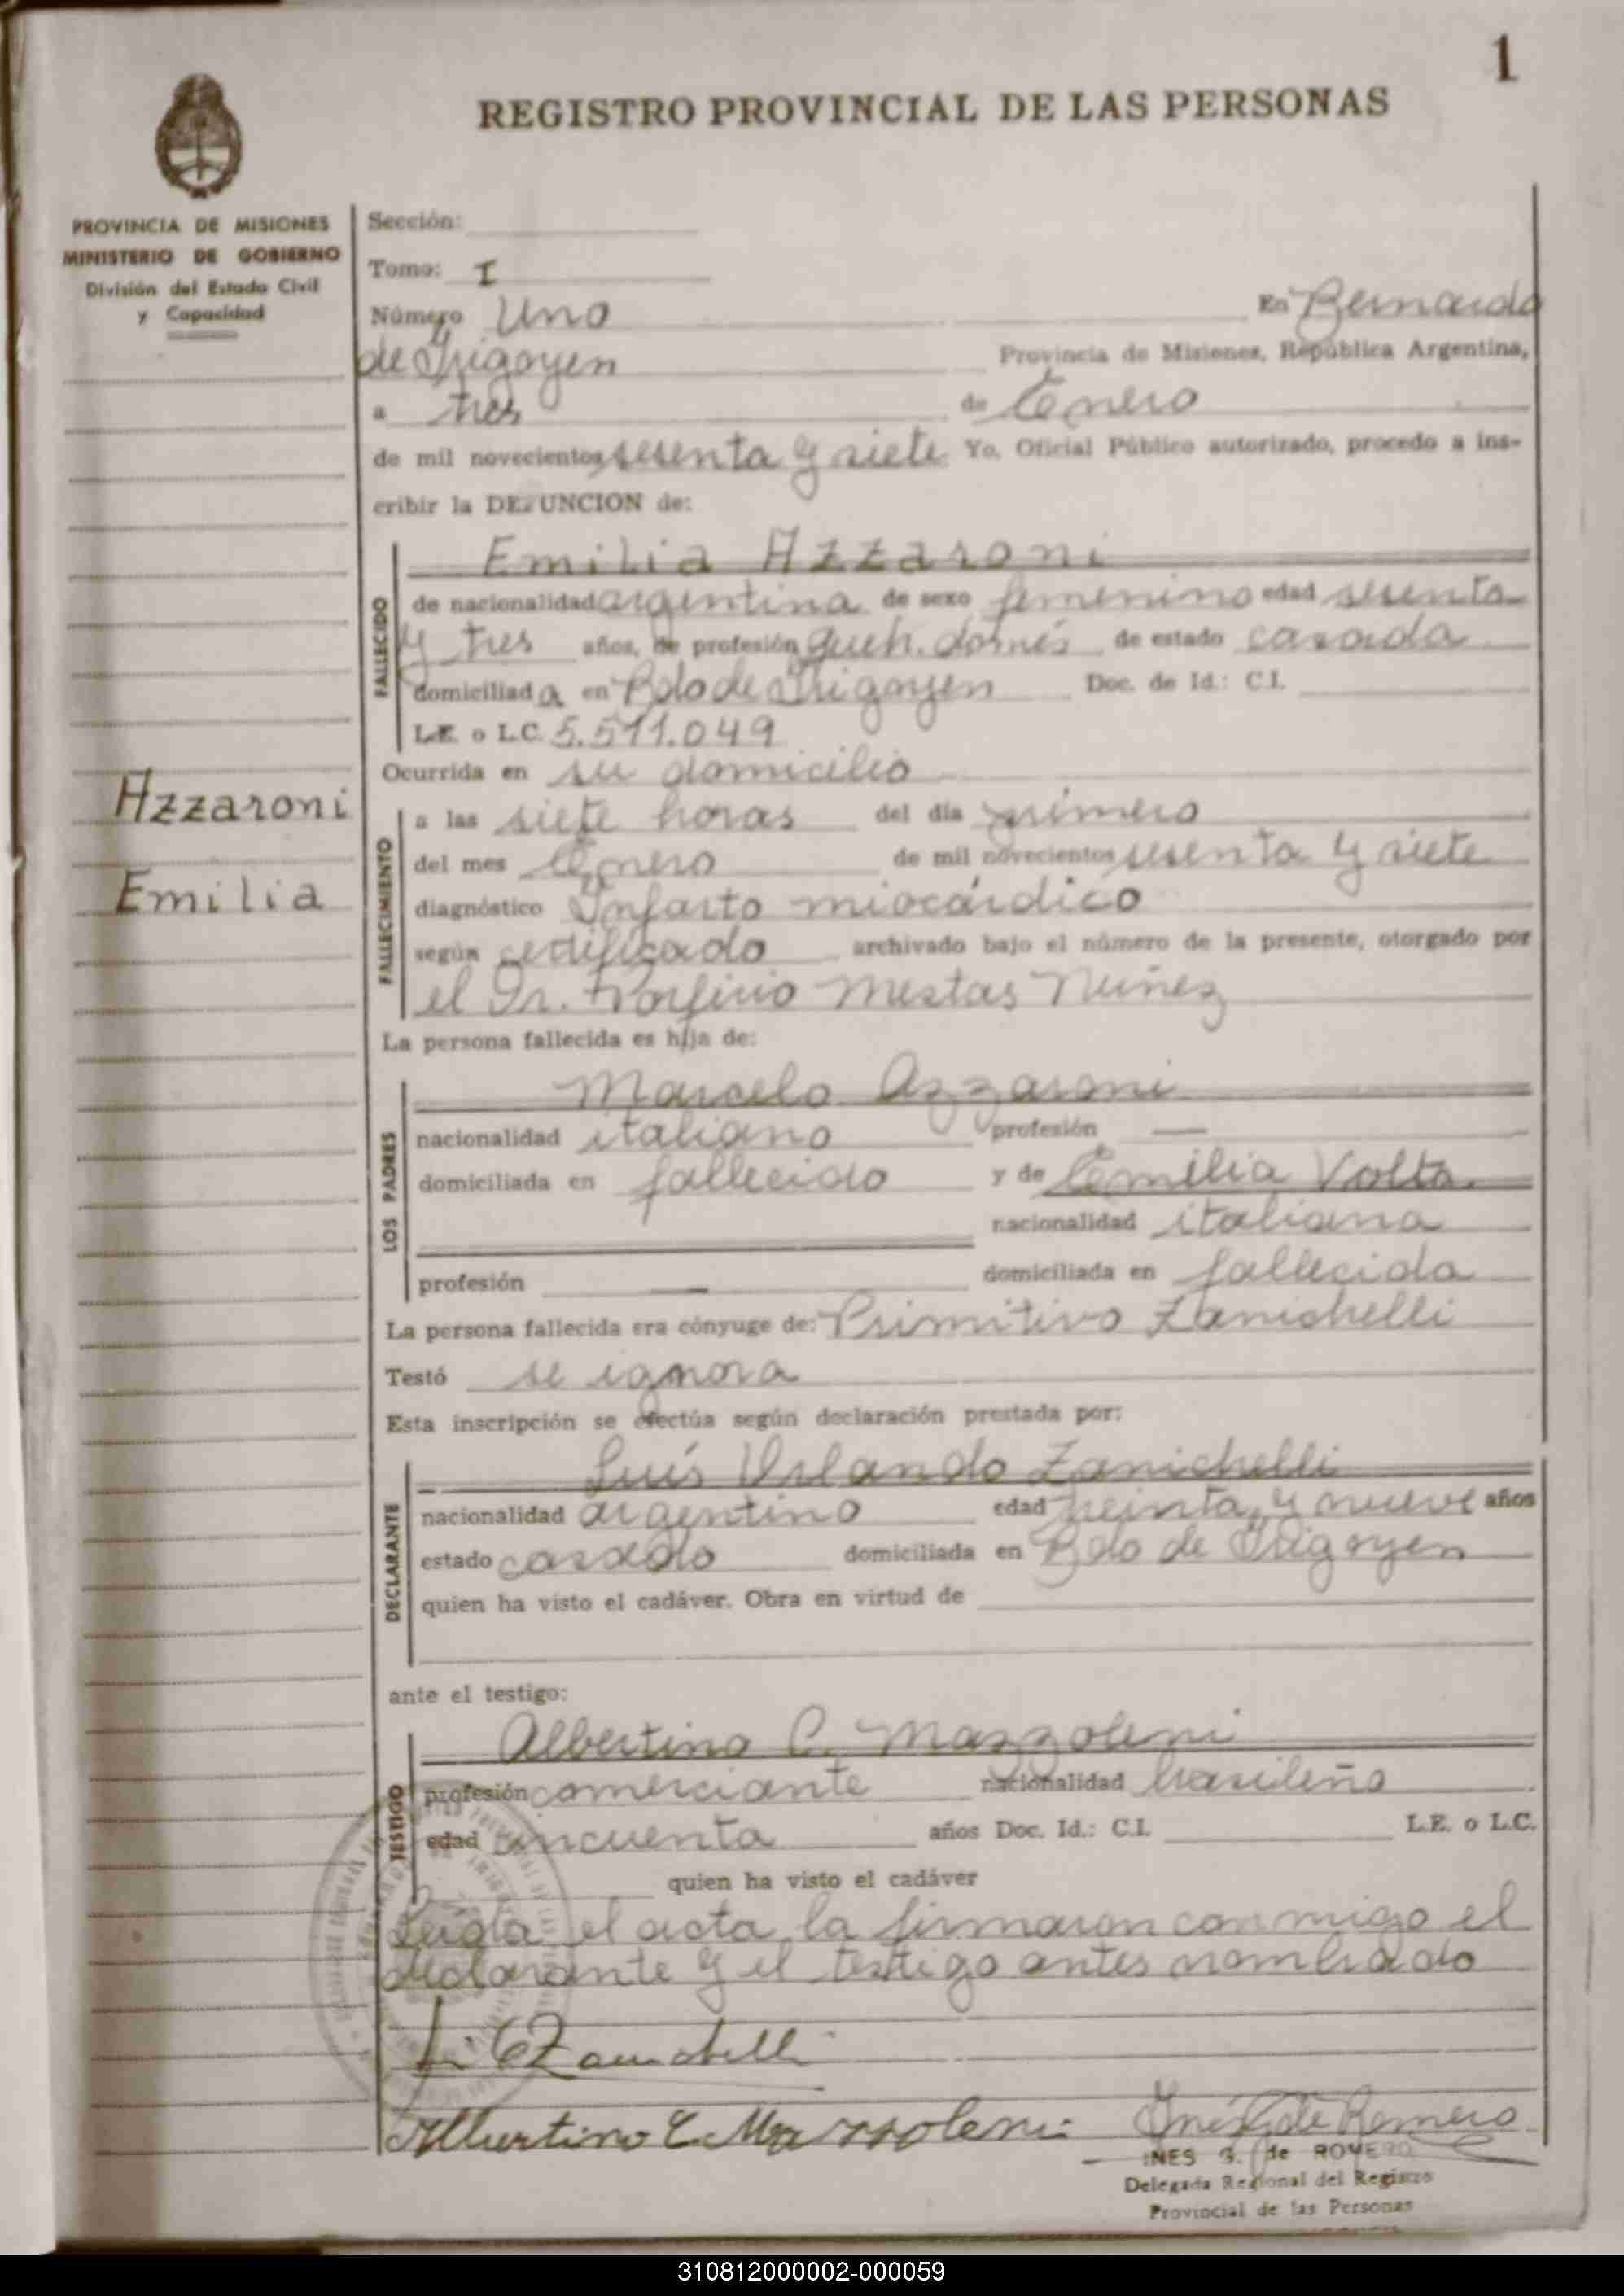 1
REGISTRO PROVINCIAL DE LAS PERSONAS
PROVINCIA DE MISIONES
MINISTERIO DE GOBIERNO
División del Estado Civil
y Capacidad
Azzaroni
Emilia
Sección:
Tomo: I
Número Uno En Bernardo
de Irigoyen Provincia de Misiones, República Argentina,
a tres de Enero
de mil novecientos sesenta y siete Yo, Oficial Público autorizado, procedo a ins-
cribir la DEFUNCION de:
FALLECIDO
Emilia Azzaroni
de nacionalidad argentina de sexo femenino edad sesenta
y tres años, de profesión queh. domés de estado casada
domiciliada en Bdo de Irigoyen Doc. de Id.: C.I.
L.E. o L.C. 5.511.049
Ocurrida en su domicilio
FALLECIMIENTO
a las siete horas del día primero
del mes Enero de mil novecientos sesenta y siete
diagnóstico Infarto miocárdico
según certificado archivado bajo el número de la presente, otorgado por
el Dr. Porfirio Mestas Nuñez
La persona fallecida es hija de:
LOS PADRES
Marcelo Azzaroni
nacionalidad italiano profesión —
domiciliada en fallecido y de Emilia Volta.
nacionalidad italiana
profesión — domiciliada en fallecida
La persona fallecida era cónyuge de: Primitivo Zanichelli
Testó se ignora
Esta inscripción se efectúa según declaración prestada por:
DECLARANTE
Luís Orlando Zanichelli
nacionalidad argentino edad treinta y nueve años
estado casado domiciliada en Bdo de Irigoyen
quien ha visto el cadáver. Obra en virtud de
ante el testigo:
TESTIGO
Albertino C. Mazzoleni
profesión comerciante nacionalidad brasileño
edad cincuenta años Doc. Id.: C.I. L.E. o L.C.
quien ha visto el cadáver
Leída el acta, la firmaron conmigo el
declarante y el testigo antes nombrado
Zanichelli
Albertino C. Mazzoleni Inés de Romero
INES G. de ROMERO
Delegada Regional del Registro
Provincial de las Personas
310812000002-000059